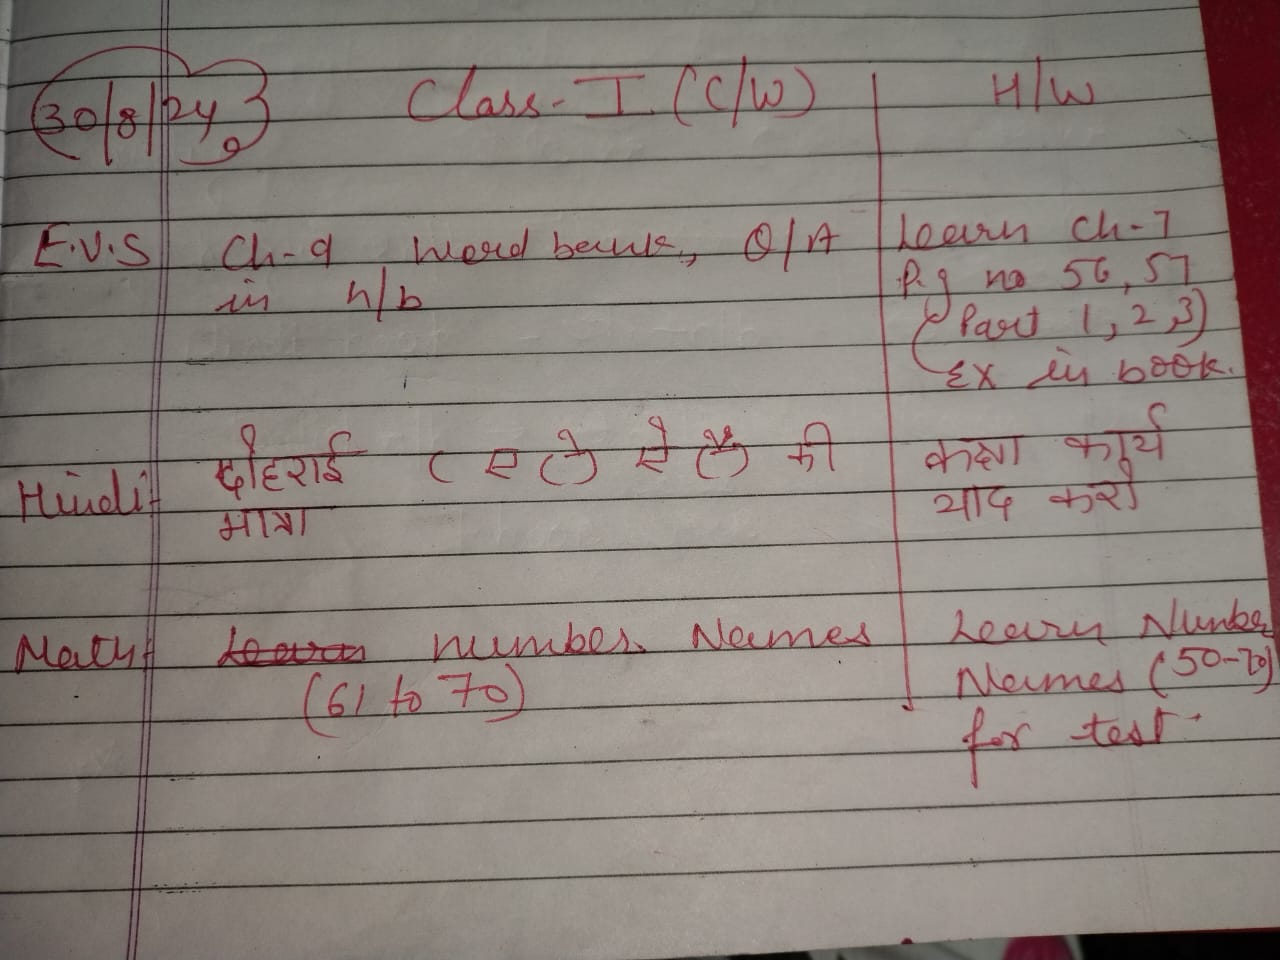 30/8/24 Class-I (C/W) H/W
E.V.S Ch-9 word bank, Q/A
in n/b
Learn Ch-7
Pg no 56, 57
(Part 1, 2, 3)
Ex in book.
Hindi- दोहराई ( की
मात्रा
कक्षा कार्य
याद करो
Math- Learn number Names
(61 to 70)
Learn Number
Names (50-70)
for test.